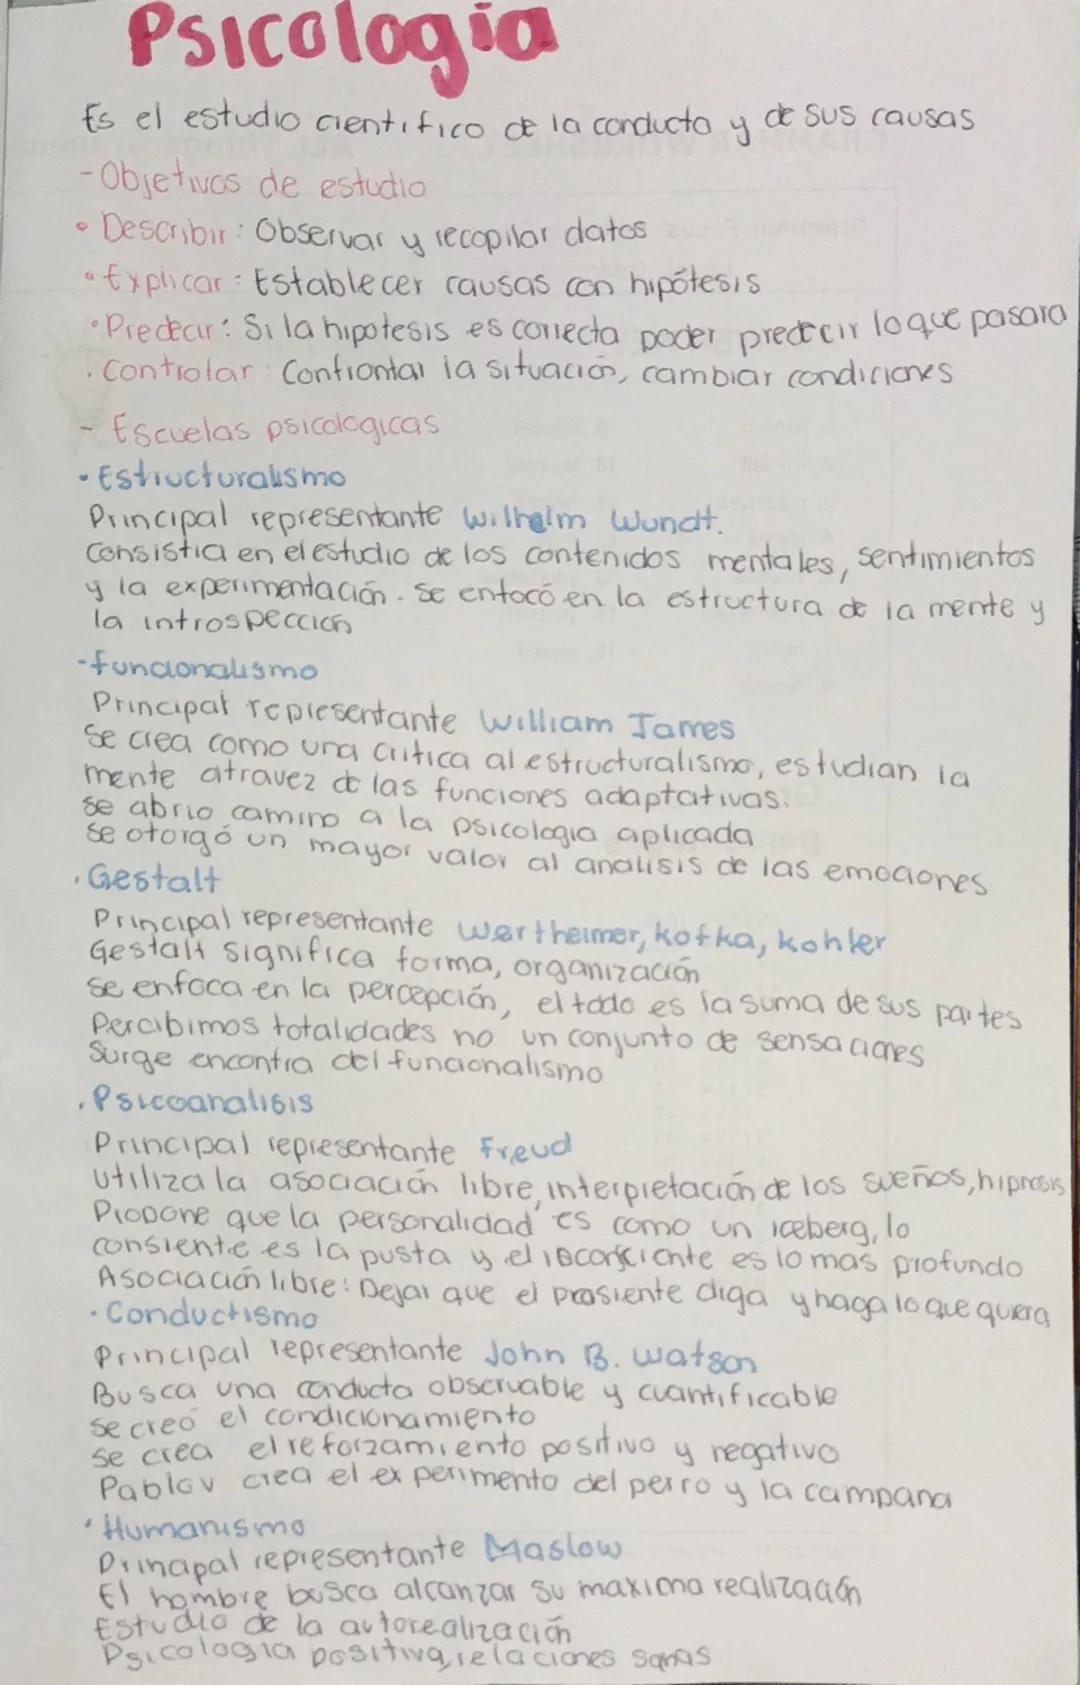 Psicologia
Es el estudio cientifico de la conducta y de sus causas
- Objetivos de estudio
• Describir: Observar y recopilar datos
• Explicar: Establecer causas con hipótesis
• Predecir: Si la hipotesis es correcta poder predecir lo que pasara
• Controlar: Confrontar la situación, cambiar condiciones
- Escuelas psicologicas
• Estructuralismo
Principal representante Wilhelm Wundt.
Consistia en el estudio de los contenidos mentales, sentimientos
y la experimentación. Se enfocó en la estructura de la mente y
la introspección
- funcionalismo
Principal representante William James
Se crea como una critica al estructuralismo, estudian la
mente atravez de las funciones adaptativas.
se abrio camino a la psicologia aplicada
se otorgó un mayor valor al analisis de las emociones
• Gestalt
Principal representante Wertheimer, kofka, kohler
Gestalt significa forma, organización
se enfoca en la percepción, el todo es la suma de sus partes
Percibimos totalidades no un conjunto de sensaciones
Surge encontra del funcionalismo
• Psicoanalisis
Principal representante Freud
utiliza la asociación libre, interpretación de los sueños, hipnosis
Propone que la personalidad es como un iceberg, lo
consiente es la pusta y el inconsciente es lo mas profundo
Asociación libre: Dejar que el prasiente diga y haga lo que quiera
• Conductismo
Principal representante John B. Watson
Busca una conducta observable y cuantificable
se creo el condicionamiento
se crea el reforzamiento positivo y negativo
Pablov crea el experimento del perro y la campana
• Humanismo
Principal representante Maslow
El hombre busca alcanzar su maxima realización
Estudio de la autorealización
Psicologia positiva, relaciones sanas